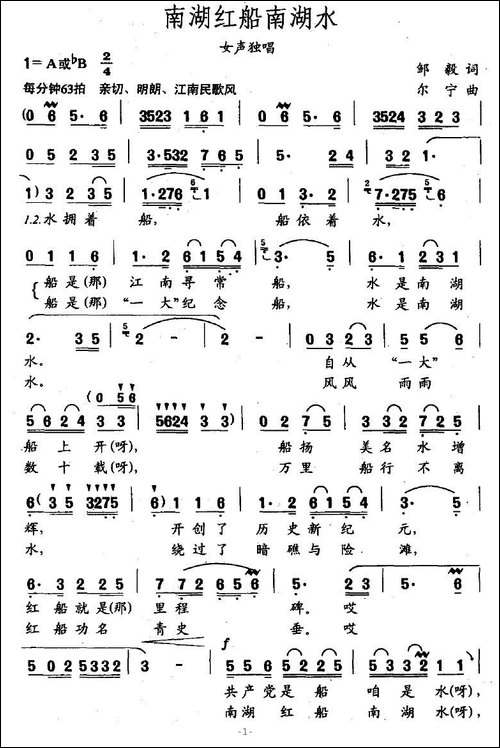 南湖红船南湖水
女声独唱
1=A或♭B 2/4
邹毅词
每分钟63拍 亲切、明朗、江南民歌风
尔宁曲
(0 6 5· 6 | 3523 1 6 1 | 3524 3 2 3 |
0 5 2 3 5 | 3·532 7 6 5 | 5· 2 4 | 3 2 1·
1) 3 2 3 5 | 1·276 6 1 | 0 3 2 3 5 | 7·275 6
1.2.水拥着 船, 船依着 水,
0 1 1 6 | 1· 2 6 1 5 4 | 3· 5 | 0 6 1 2 3 1
船是(那) 江南寻常 船, 水是南湖
船是(那) “一大”纪念 船, 水是南湖
2· 3 5 | 2 - | 2 - | 0 3 2 3 5
水。 自从“一大”
水。 风风雨雨
(0 5 6
5 6 2 4 3 | 5624 3 3) | 0 2 7 5 | 3 3 2 7 2 5
船上开(呀), 船扬 美名水增
数十载(呀), 万里 船行不离
6 (3 5 3275 | 6) 1 1 6 | 2 6 1 5 4 | 3· 5
辉, 开创了 历史新纪 元,
水, 绕过了 暗礁与险 滩,
6· 3 2 2 5 | 7 7 2 6 5 6 | 5· 3 | 2· 6
红船就是(那) 里程 碑。 哎
红船功名 青史 垂。 哎
f
5 0 2 5332 | 3 - | 5 5 6 1 2 | 5 3 2 1 1
共产党是船 咱是水(呀),
南湖红船 南湖水(呀),
-1-